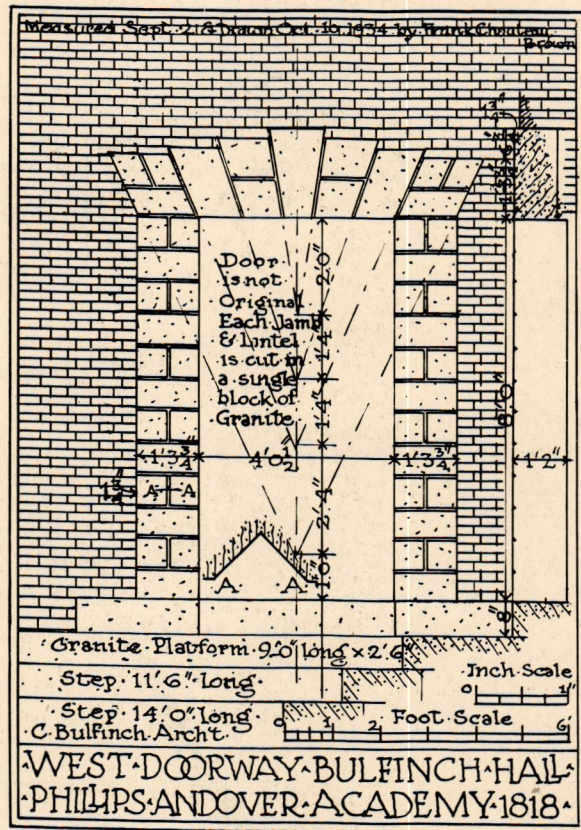 Measured Sept. 2, & Drawn Oct. 16, 1934 by Frank Chouteau
Brown
Door
is not
Original
Each Jamb
& Lintel
is cut in
a single
block of
Granite
2'0"
1'4"
1'4"
2'4"
1'0"
1'3¾"
4'0½"
1'3¾"
1¾"
A A
A A
8'0"
1'2"
8"
Granite Platform 9'0" long × 2'6"
Step 11'6" Long
Step 14'0" long
C. Bulfinch Arch't.
Inch Scale
0 1"
Foot Scale
0 1 2 6'
WEST·DOORWAY·BULFINCH·HALL
PHILLIPS·ANDOVER·ACADEMY·1818·